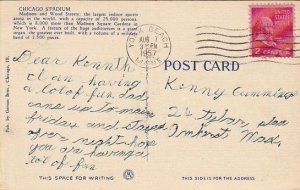 CHICAGO STADIUM
Madison and Wood Streets; the largest indoor sports
arena in the world, with a capacity of 25,000 persons
which is 8,000 more than Madison Square Gardens in
New York. A feature of the huge auditorium is a giant
organ, the greatest ever built, with a volume of a military
band of 2,500 pieces.
YORK BEACH
AUG
PM
1957
MAINE
2 CENTS 2
POST CARD
Dear Kenneth
I am having
a lot of fun. Dad
came up to
friday and stayed
over night hope
you are having a
lot of fun
Kenny
24 Tyler
Amherst Mass.
Pub. by Cameo Greeting Cards, Chicago, Ill.
THIS SPACE FOR WRITING
THIS SIDE IS FOR THE ADDRESS